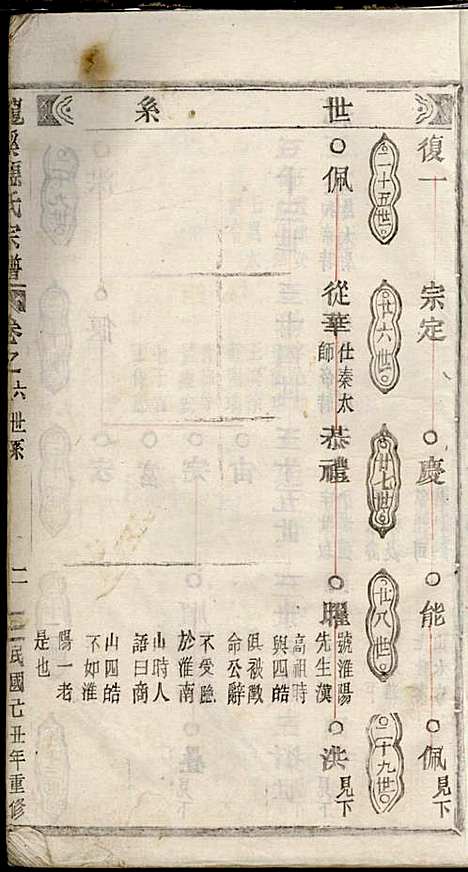 世系
復一
宗定
慶
能
佩
見下
二十五世
廿六世
廿七世
廿八世
二十九世
佩
從華
仕秦太
師
恭禮
曜
號淮陽
先生漢
高祖時
與四皓
俱被徵
命公辭
不受隱
於淮南
山時人
語曰商
山四皓
不如淮
陽一老
是也
洪
見下
氏宗譜
卷之六世系
二
民國己丑年重修